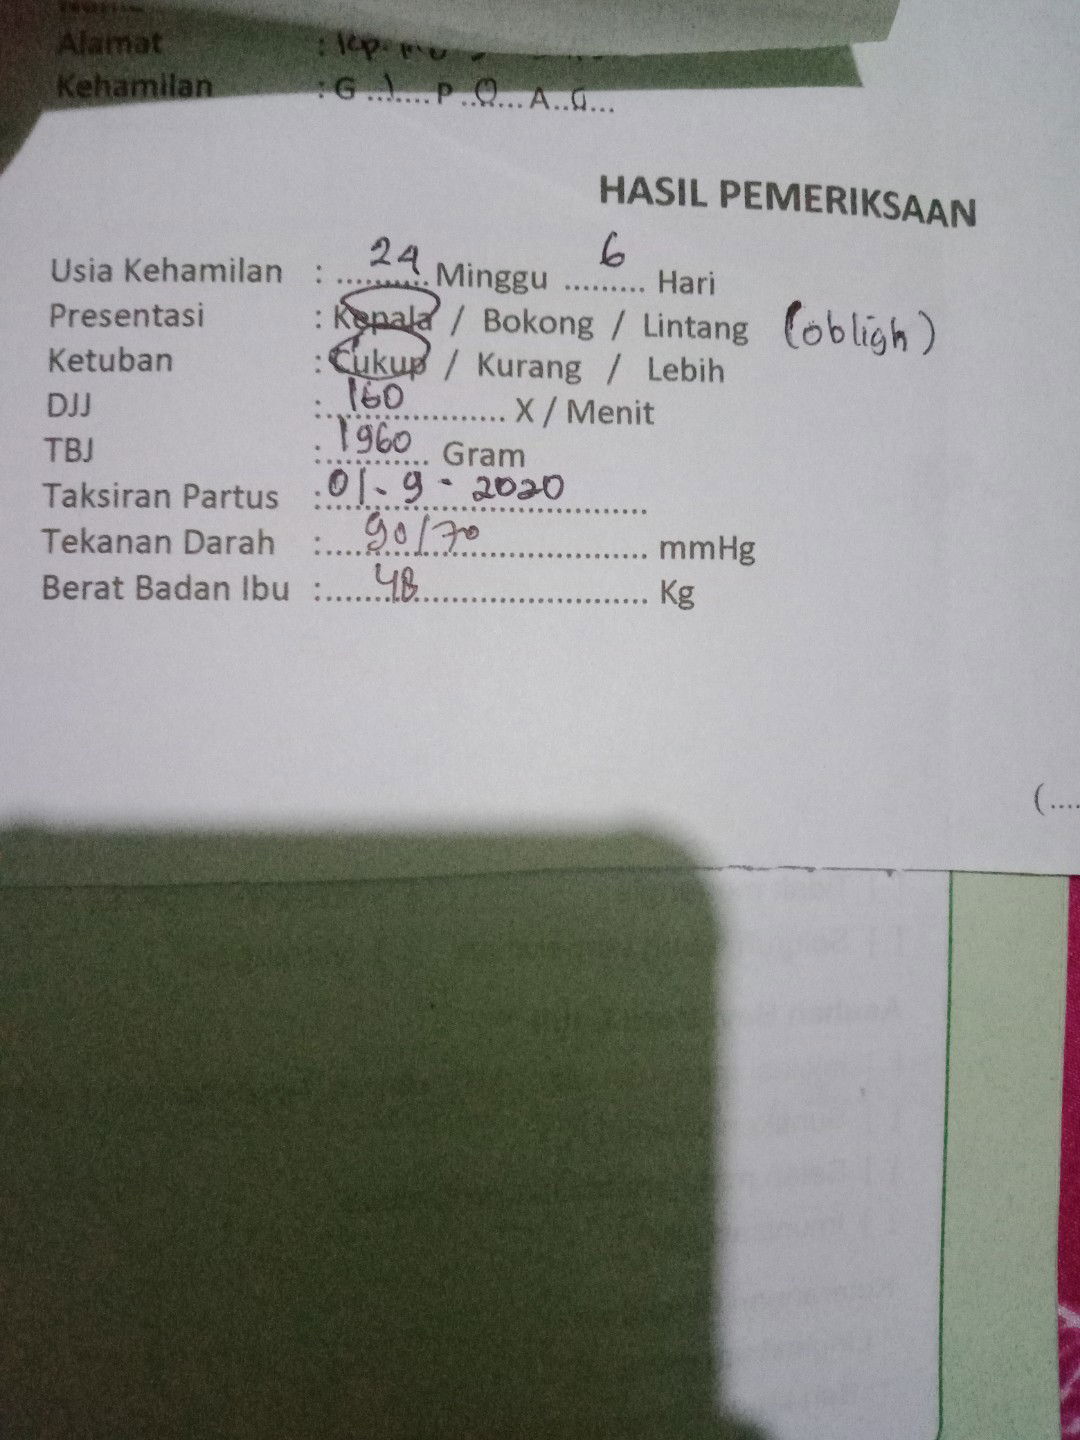 Alamat : kp.
Kehamilan : G...1.... P..0... A..0...
HASIL PEMERIKSAAN
Usia Kehamilan : ....24.... Minggu ....6.... Hari
Presentasi : Kepala / Bokong / Lintang (obligh)
Ketuban : Cukup / Kurang / Lebih
DJJ : ....160.................. X / Menit
TBJ : 1960 ........... Gram
Taksiran Partus : 01 - 9 - 2020
Tekanan Darah : ......90/70.......................... mmHg
Berat Badan Ibu : ........48................................ Kg
(....